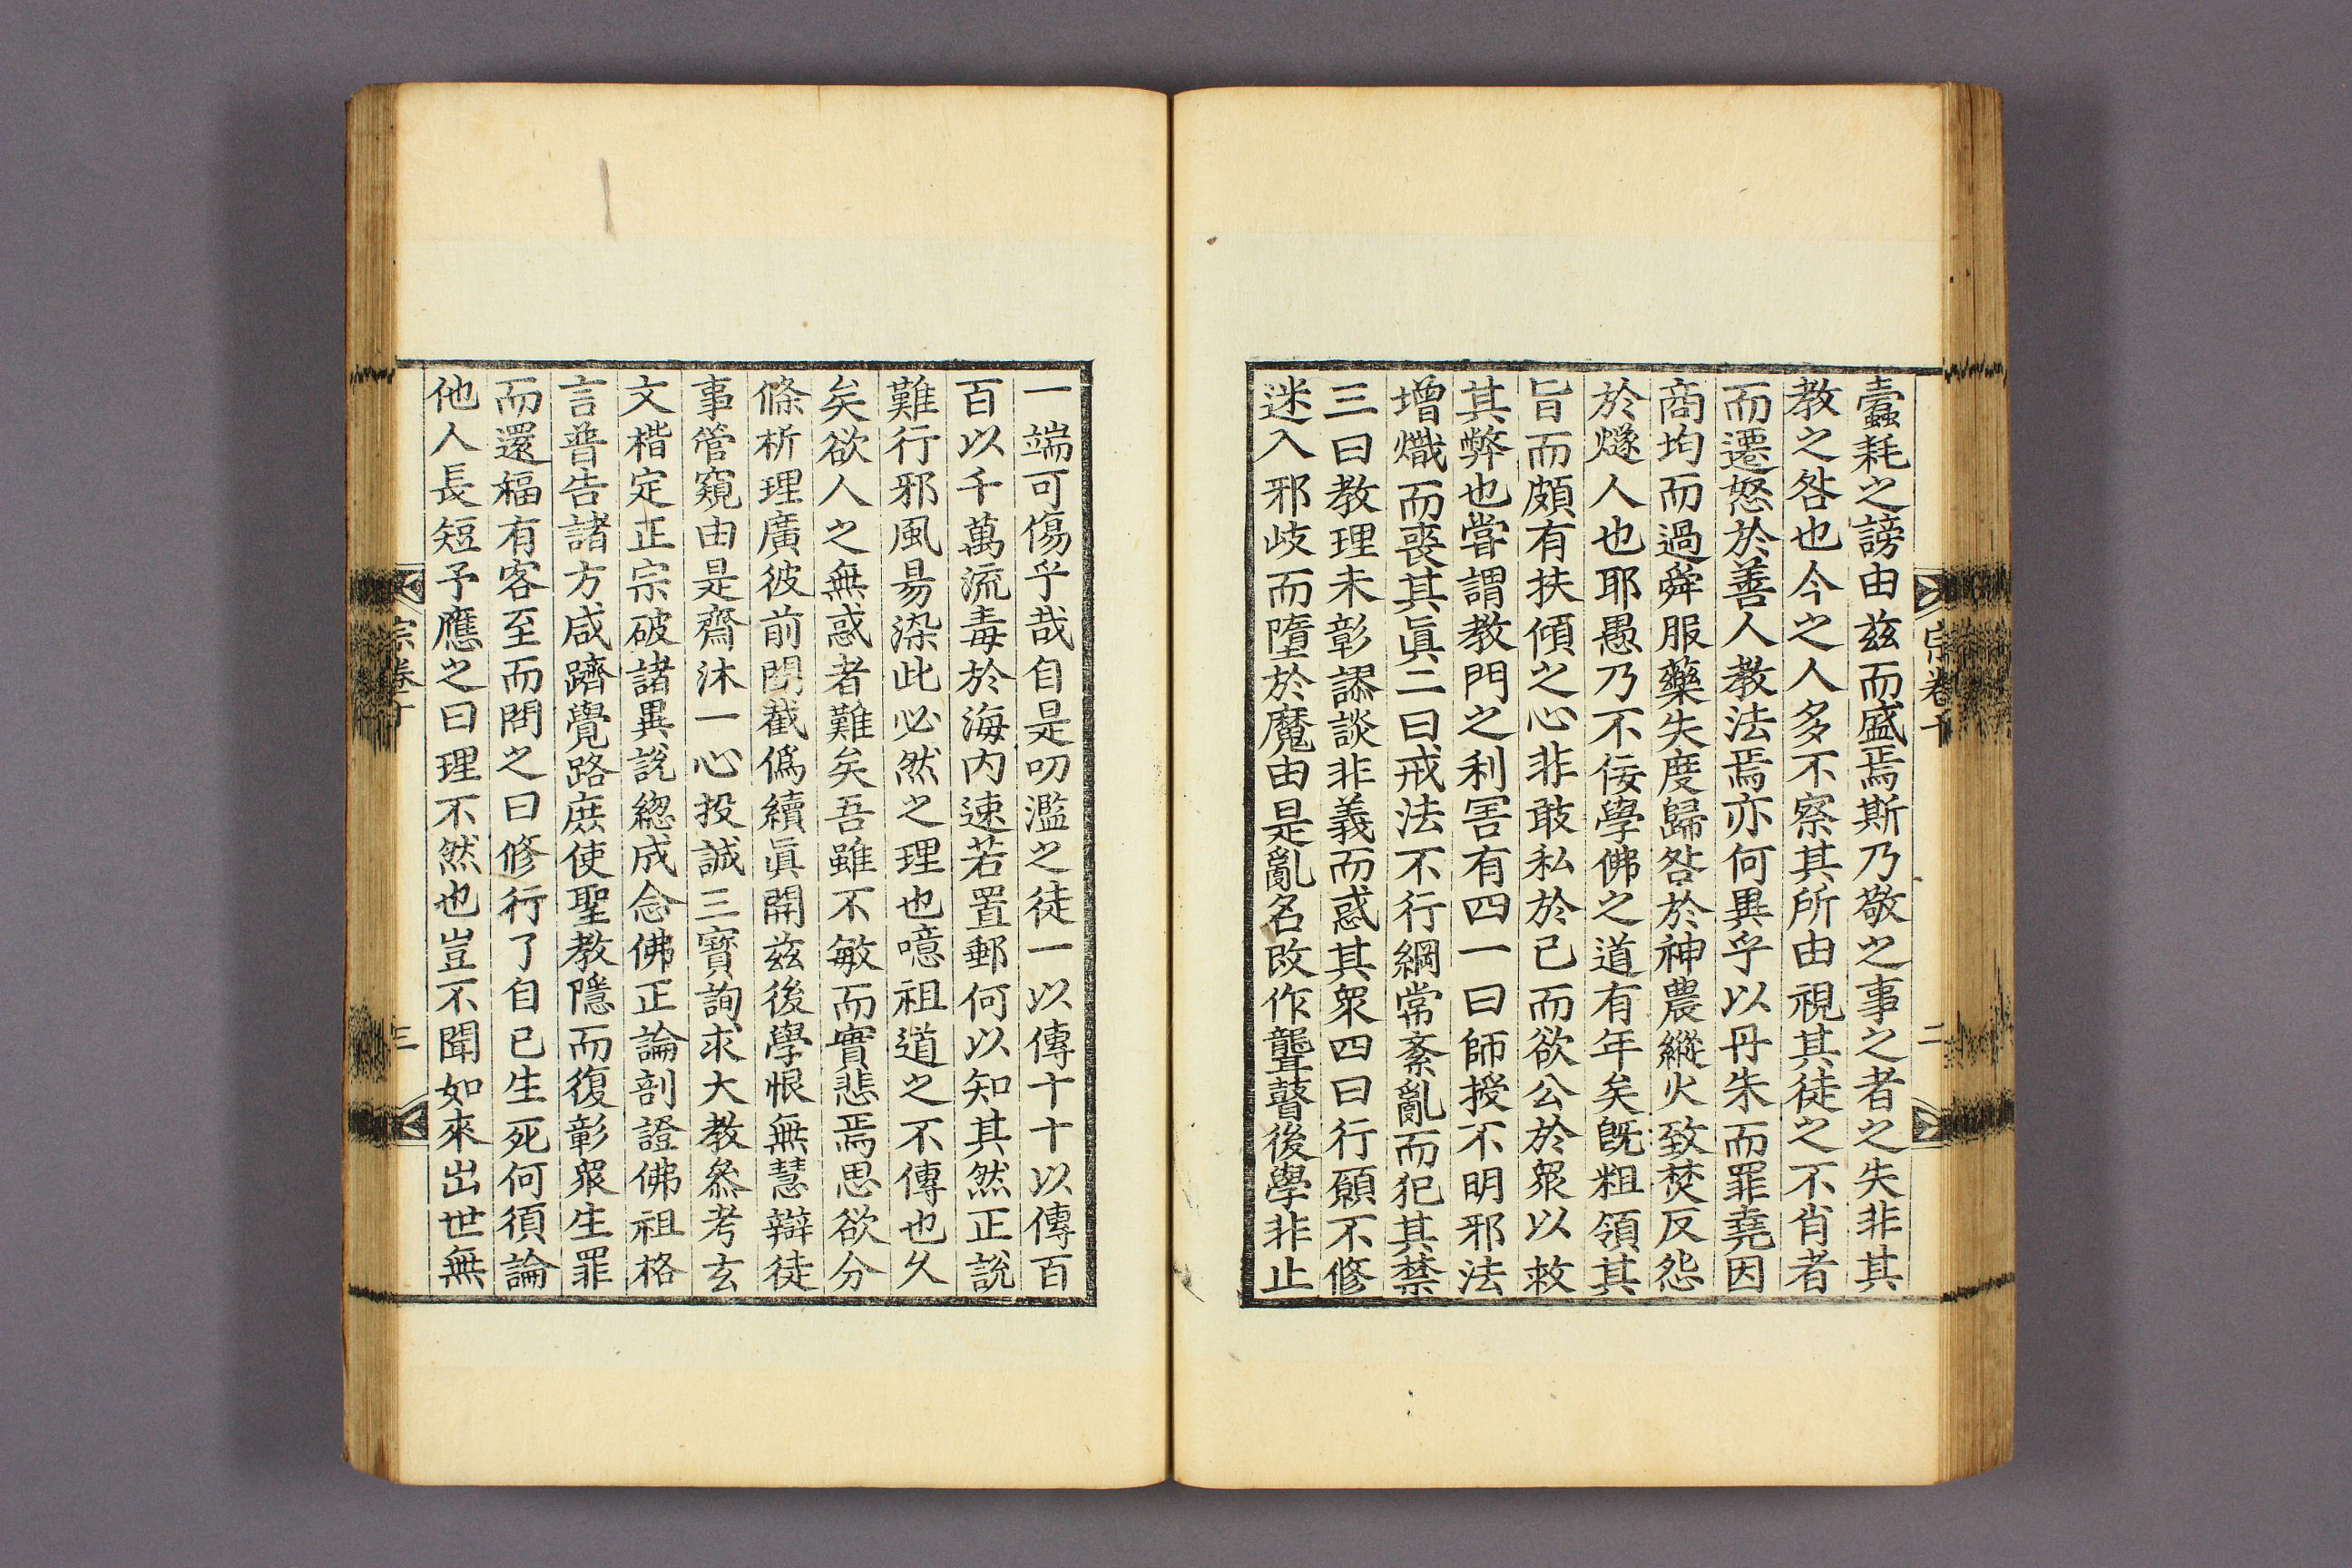 蠧耗之謗由兹而盛焉斯乃敬之事之者之失非其
教之咎也今之人多不察其所由視其徒之不肖者
而遷怒於善人教法焉亦何異乎以丹朱而罪堯因
商均而過舜服藥失度歸咎於神農縱火致焚反怨
於燧人也耶愚乃不佞學佛之道有年矣旣粗領其
旨而頗有扶傾之心非敢私於已而欲公於衆以救
其弊也嘗謂教門之利害有四一曰師授不明邪法
增熾而喪其眞二曰戒法不行綱常紊亂而犯其禁
三曰教理未彰謬談非義而惑其衆四曰行願不修
迷入邪岐而墮於魔由是亂名改作聾瞽後學非止
一端可傷乎哉自是叨濫之徒一以傳十十以傳百
百以千萬流毒於海內速若置郵何以知其然正說
難行邪風易染此必然之理也噫祖道之不傳也久
矣欲人之無惑者難矣吾雖不敏而實悲焉思欲分
條析理廣彼前聞截僞續眞開兹後學恨無慧辯徒
事管窺由是齋沐一心投誠三寶詢求大教叅考玄
文楷定正宗破諸異說緫成念佛正論剖證佛祖格
言普告諸方咸躋覺路庶使聖教隱而復彰衆生罪
而還福有客至而問之曰修行了自已生死何須論
他人長短予應之曰理不然也豈不聞如來出世無
宗卷十
二
宗卷十
三